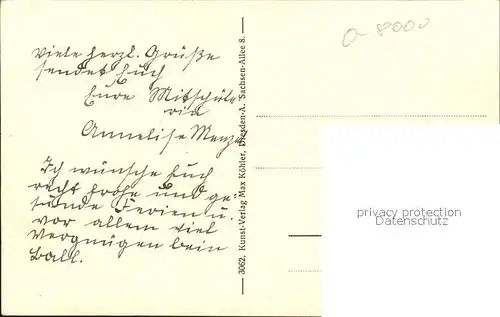 Viele herzl. Grüße
sendet Euch
Eure Mitschüle
rin
Annelise Menze
Ich wünsche Euch
recht frohe und ge-
sunde Ferien u.
vor allem viel
Vergnügen beim
Ball.
3062. Kunst-Verlag Max Köhler, Dresden-A. Sachsen-Allee 8.
O-8000
privacy protection
Datenschutz